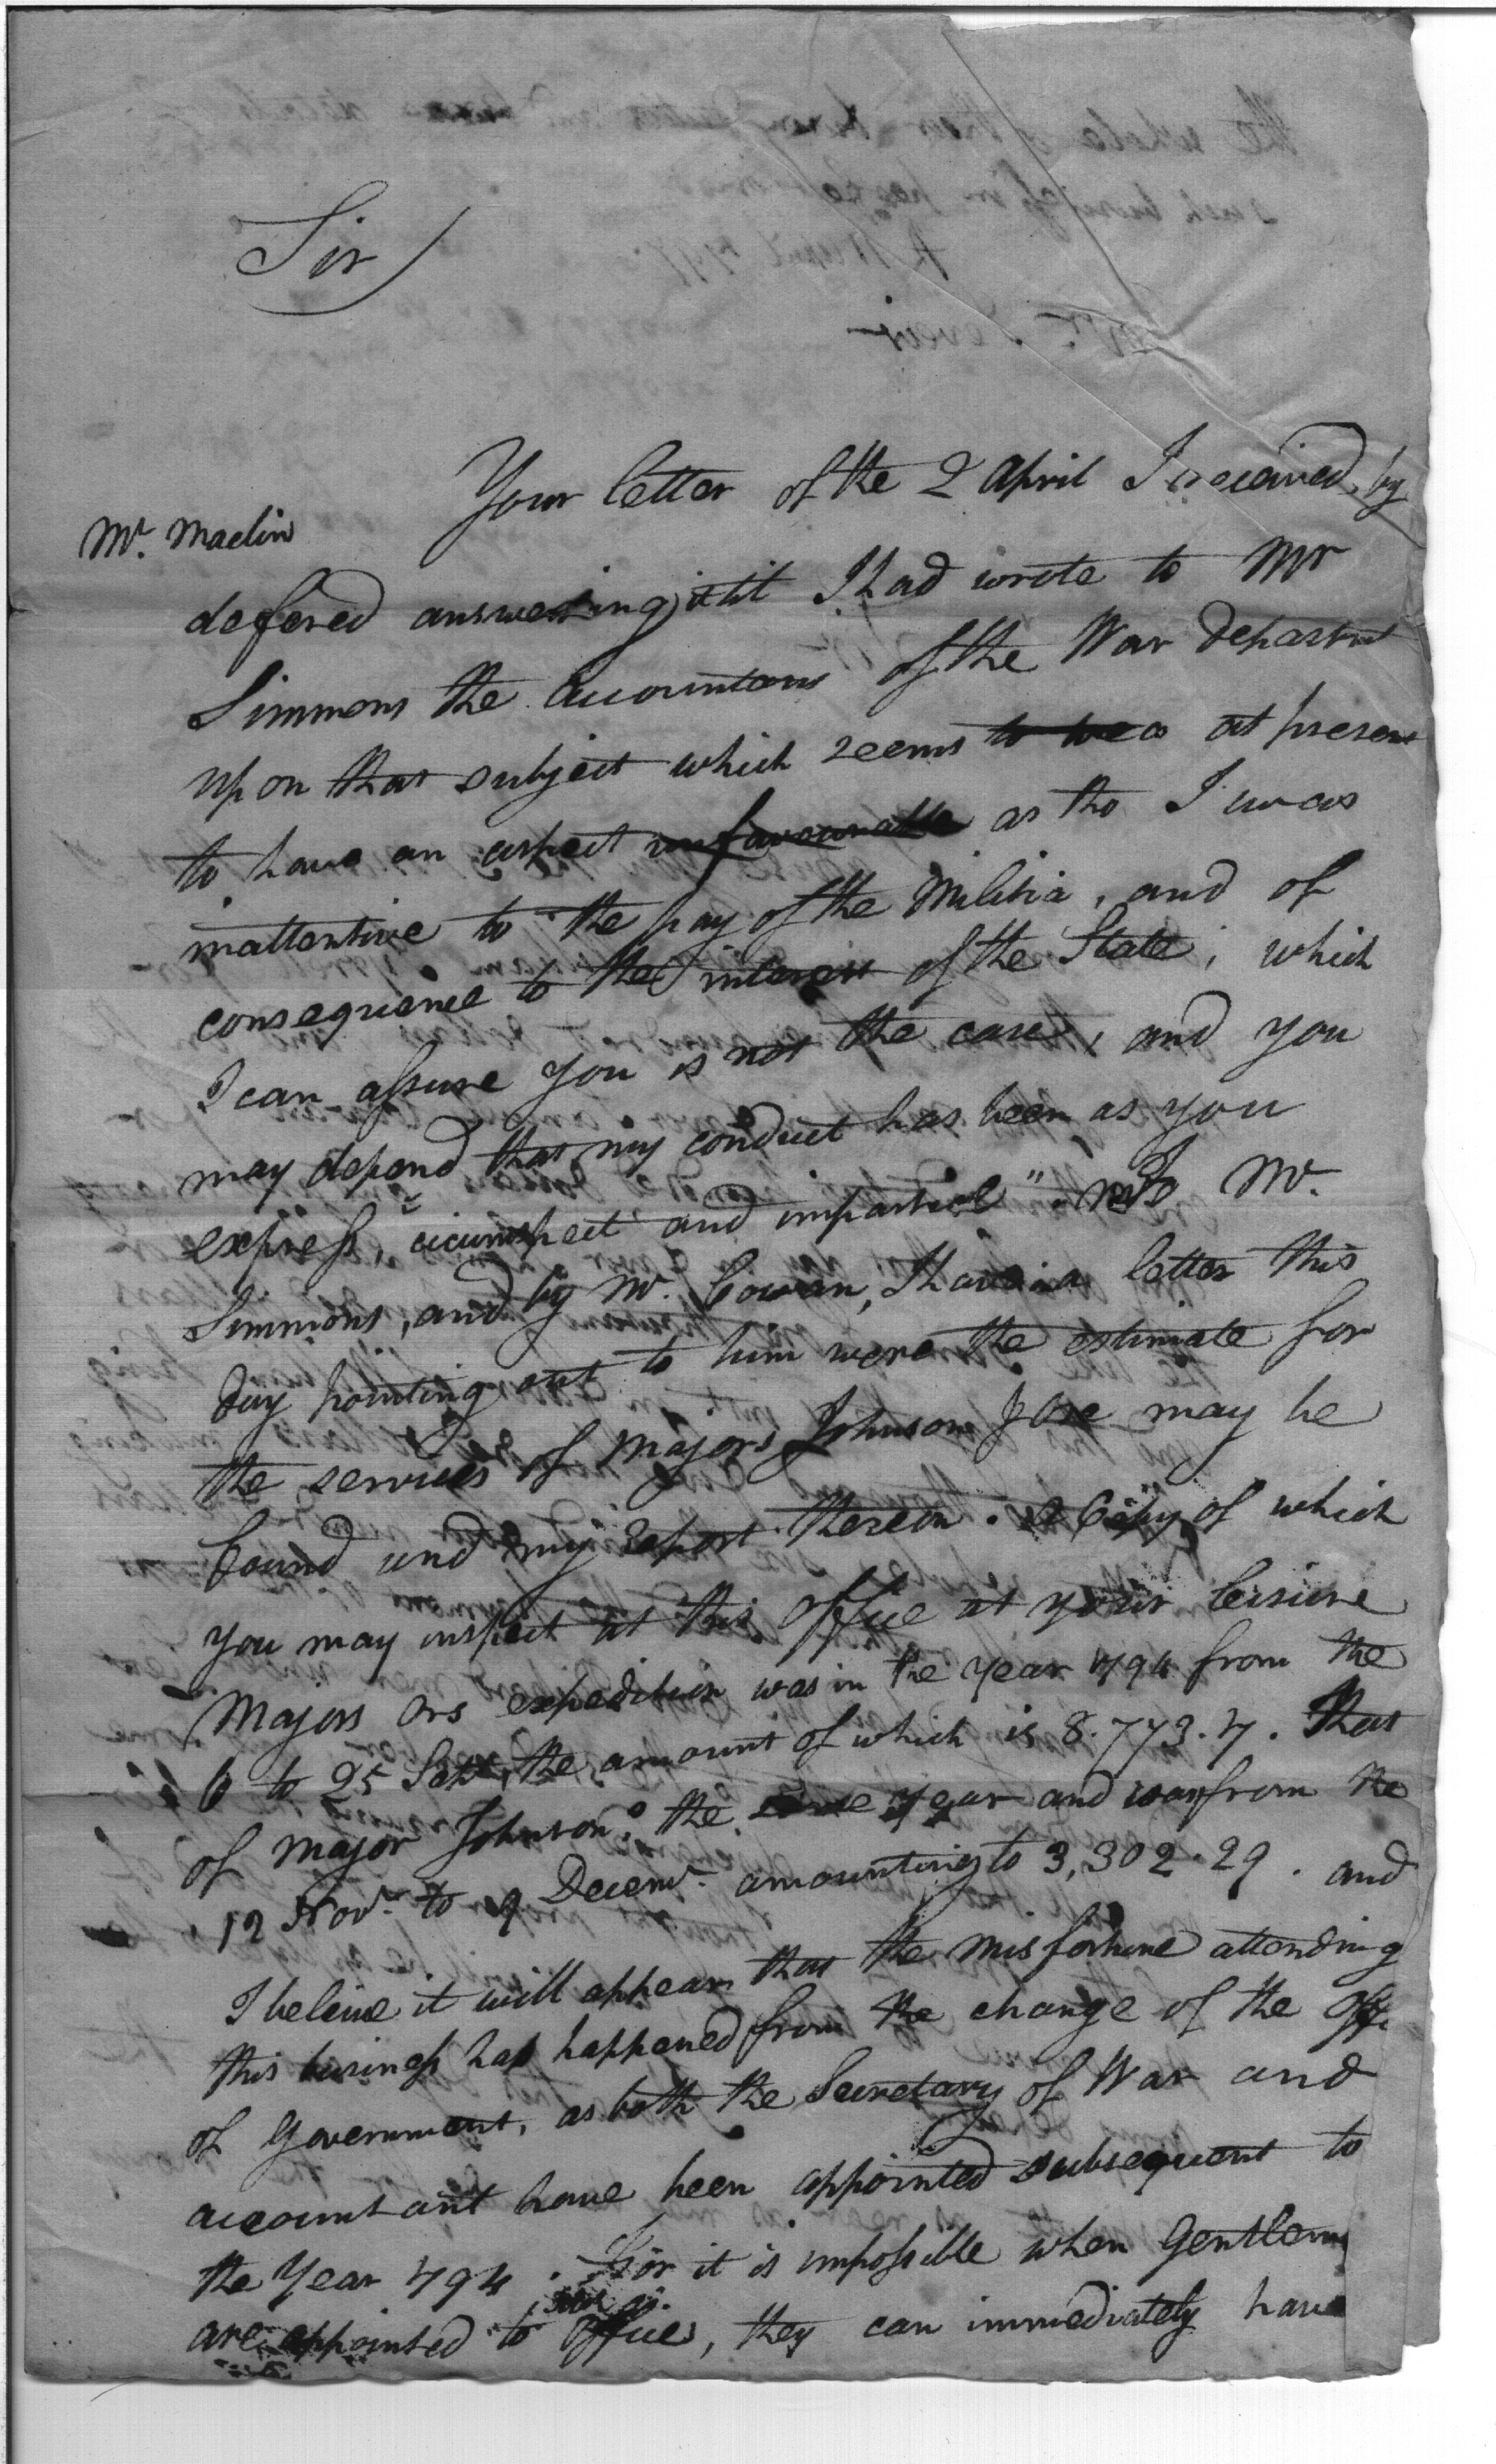 Sir
Your letter of the 2 April I received by
Mr. Maclin
defered answering it til I had wrote to Mr
Simmons the accountant of the War Departmt
upon that subject which seems at present
to have an aspect unfavourable as tho I was
inattentive to the pay of the Militia, and of
consequence to the interest of the State; which
I can assure you is not the case, and you
may depend that my conduct has been as you
express, "circumspect and impartial". To Mr.
Simmons, and by Mr. Cowan, I have a letter this
day pointing out to him were the estimate for
the services of Majors Johnson & Ore may be
found and my report thereon. a Copy of which
you may inspect at this office at your leisure
Majors Ors expedition was in the year 794 from the
6 to 25 Sepr, the amount of which is 8.773.7. That
of Major Johnson: the same year and was from the
12 Novr. to 9 Decemr. amounting to 3,302.29. and
I beleive it will appear that the misfortune attending
this business has happened from the change of the Offi
of Government, as both the Secretary of War and
accountant have been appointed subsequent to
the Year 794. For it is impossible when Gentlemn
are appointed to offices, they can immediately have